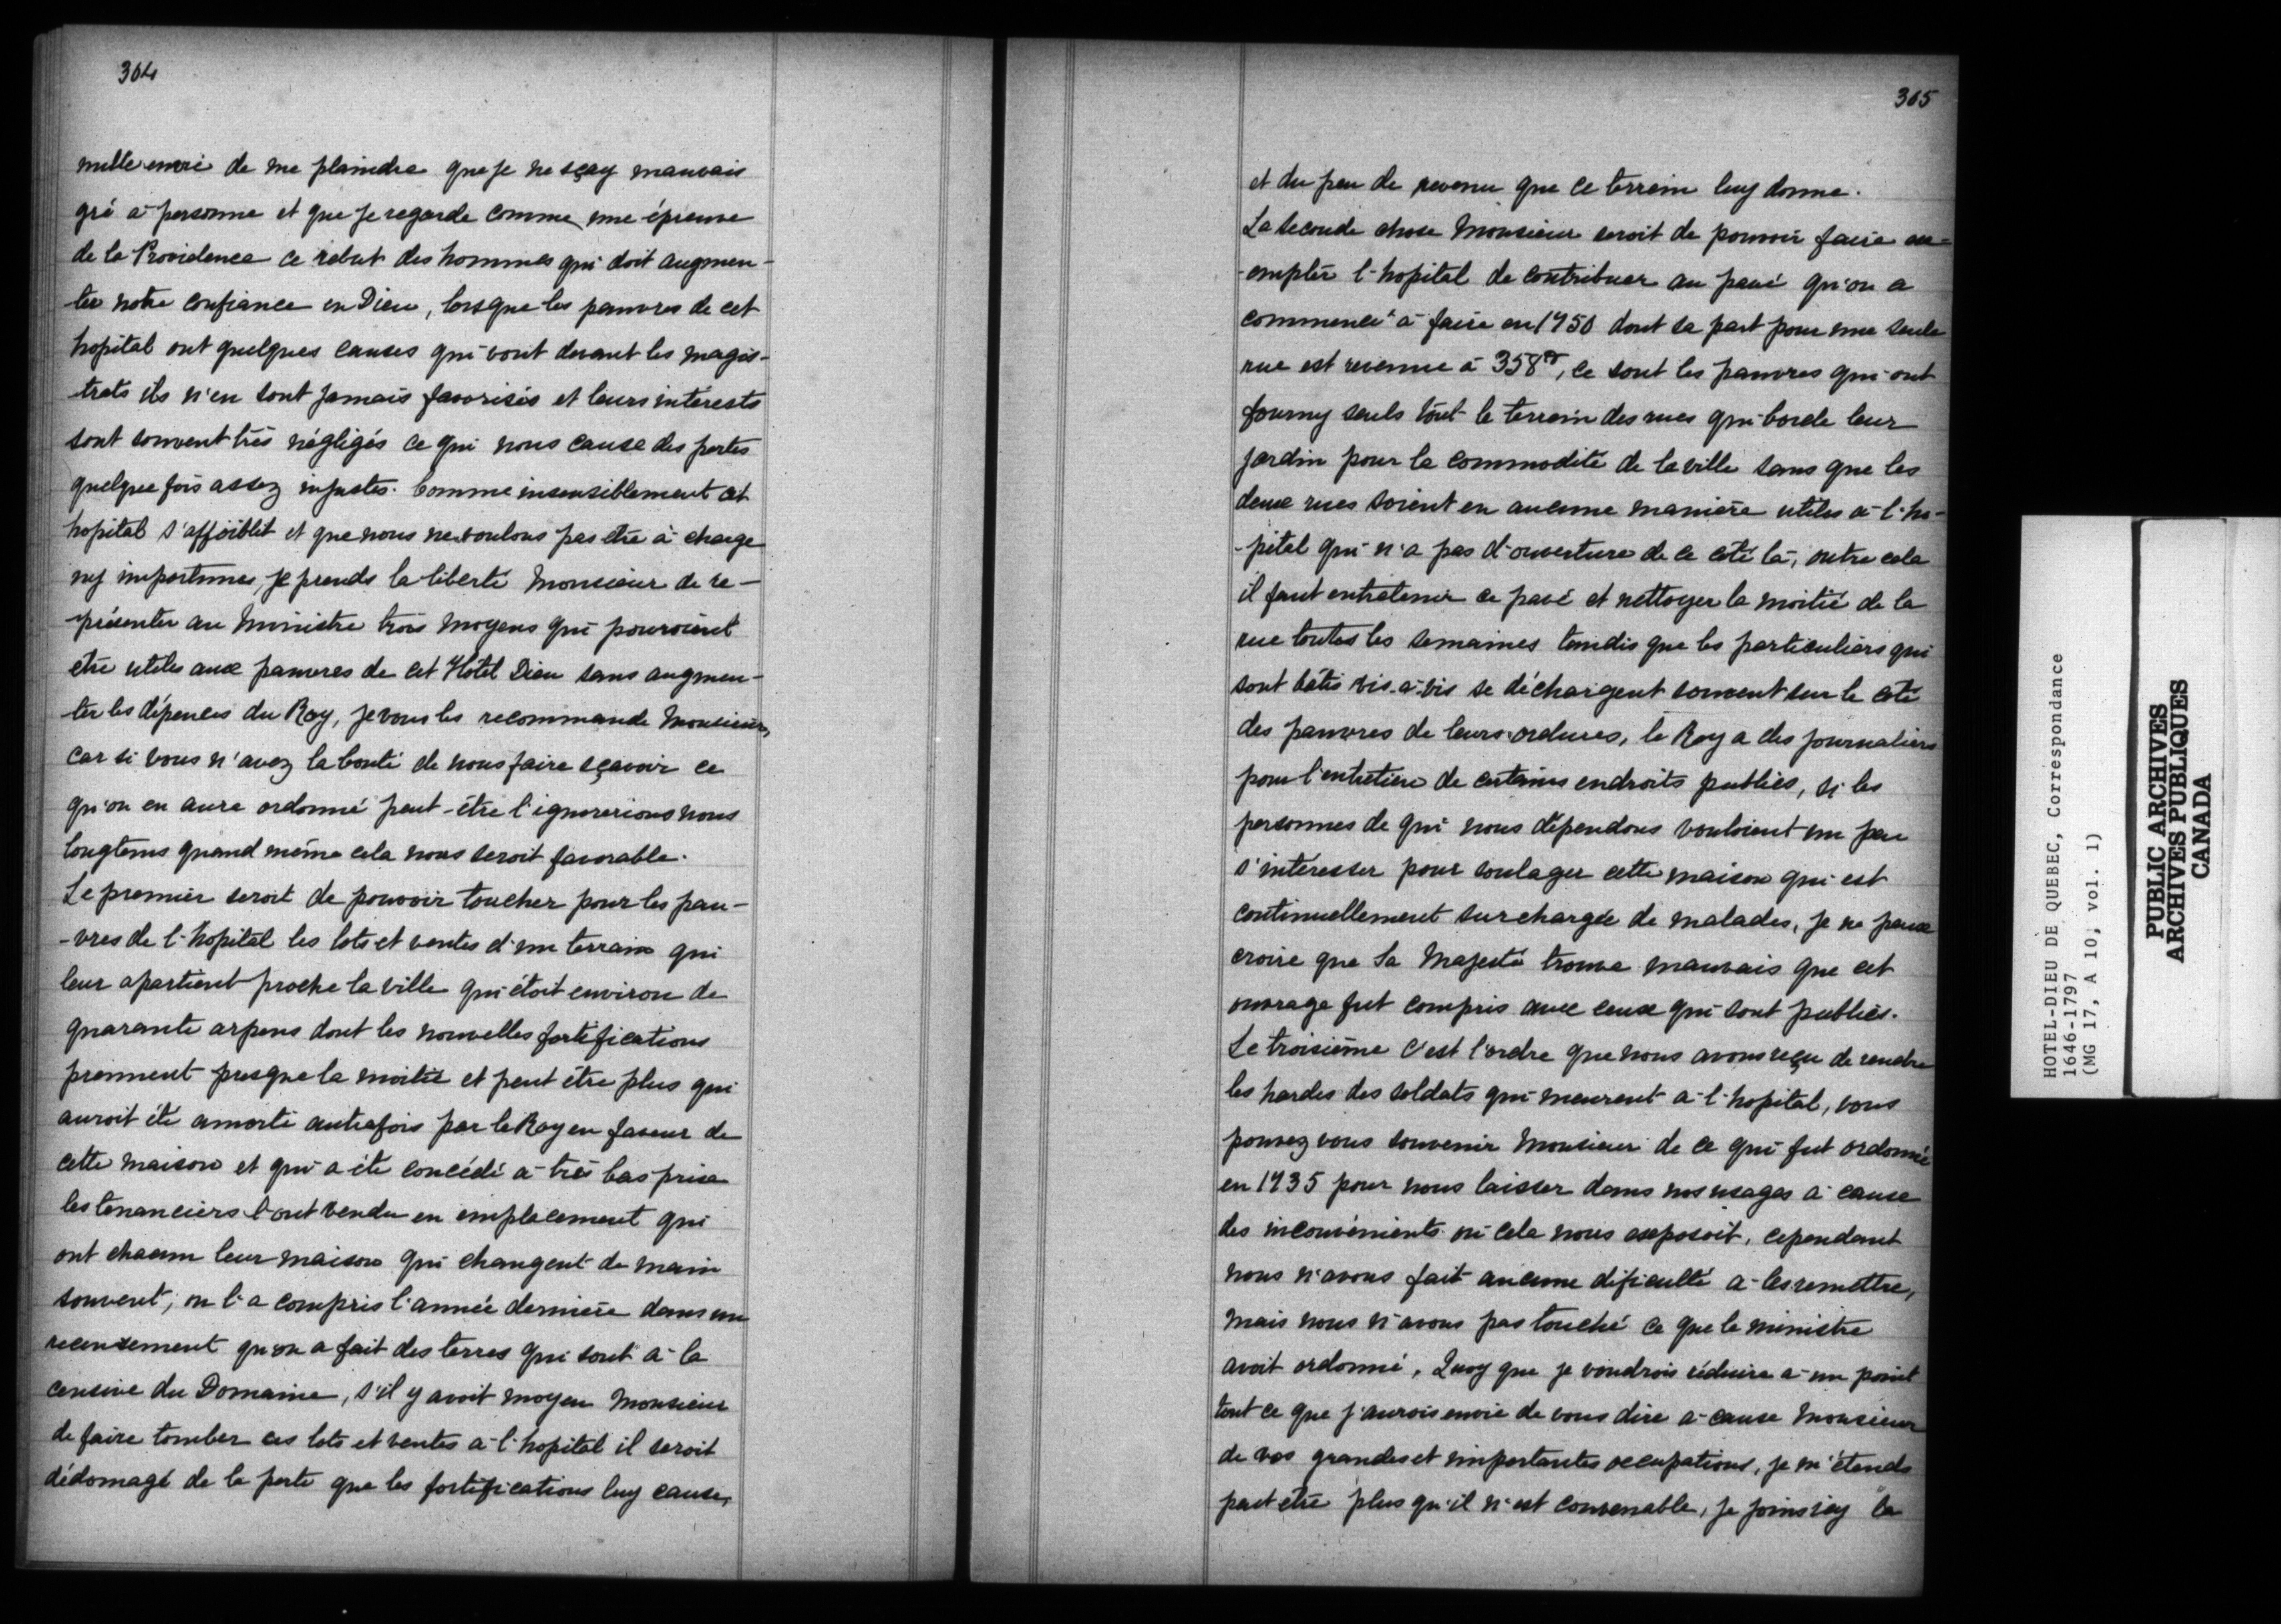 304
nulle envie de me plaindre que je ne sçay mauvais
gré a personne et que je regarde comme une épreuve
de la Providence ce rebut des hommes qui doit augmen-
ter notre confiance en Dieu, lorsque les pauvres de cet
hopital ont quelques causes qui vont devant les magis-
trats ils n'en sont jamais favorisés et leurs intérests
sont souvent très négligés ce qui nous cause des pertes
quelque fois assez injustes. Comme insensiblement cet
hopital s'affoiblit et que nous ne voulons pas etre à charge
ny importunes, je prends la liberté Monsieur de re-
présenter au Ministre trois moyens qui pouroient
etre utiles aux pauvres de cet Hôtel Dieu sans augmen-
ter les dépences du Roy, je vous les recommande Monsieur,
car si vous n'avez la bonté de nous faire sçavoir ce
qu'on en aura ordonné peut-être l'ignorerions nous
longtems quand même cela nous seroit favorable.
Le premier seroit de pouvoir toucher pour les pau-
-vres de l'hopital les lots et ventes d'un terrain qui
leur apartient proche la ville qui étoit environ de
quarante arpens dont les nouvelles fortifications
prennent presque la moitié et peut être plus qui
auroit été amorti autrefois par le Roy en faveur de
cette maison et qui a été concédé a très bas prix
les tenanciers l'ont vendu en emplacement qui
ont chacun leur maison qui changent de main
souvent, on l'a compris l'année dernière dans un
recensement qu'on a fait des terres qui sont à la
censive du Domaine, s'il y avoit moyen Monsieur
de faire tomber ces lots et ventes a l'hopital il seroit
dédomagé de la perte que les fortifications luy cause,
305
et du peu de revenu que ce terrein luy donne.
La seconde chose Monsieur seroit de pouvoir faire ex-
-empter l'hopital de contribuer au pavé qu'on a
commencé à faire en 1750 dont sa part pour une seule
rue est revenue à 358, ce sont les pauvres qui ont
fourny seuls tout le terrein des rues qui borde leur
jardin pour la commodité de la ville sans que les
deux rues soient en aucune manière utiles a l'ho-
-pital qui n'a pas d'ouverture de ce coté là, outre cela
il faut entretenir ce pavé et nettoyer la moitié de la
rue toutes les semaines tandis que les particuliers qui
sont bâtis vis-a-vis se déchargent souvent sur le coté
des pauvres de leurs ordures, le Roy a des journaliers
pour l'entretien de certains endroits publics, si les
personnes de qui nous dépendons vouloient un peu
s'intéresser pour soulager cette maison qui est
continuellement surchargée de malades, je ne peux
croire que Sa Majesté trouve mauvais que cet
ouvrage fut compris avec ceux qui sont publics.
Le troisième c'est l'ordre que nous avons reçu de rendre
les hardes des soldats qui meurent a l'hopital, vous
pouvez vous souvenir Monsieur de ce qui fut ordonné
en 1735 pour nous laisser dans nos usages à cause
des inconvénients où cela nous exposoit, cependant
nous n'avons fait aucune dificulté a les remettre,
mais nous n'avons pas touché ce que le ministre
avoit ordonné, Quoy que je voudrois réduire a un point
tout ce que j'aurois envie de vous dire a cause Monsieur
de vos grandes et importantes occupations, je m'étends
peut etre plus qu'il n'est convenable, je joins icy la
HOTEL-DIEU DE QUEBEC, Correspondance
1646-1797
(MG 17, A 10, vol. 1)
PUBLIC ARCHIVES
ARCHIVES PUBLIQUES
CANADA